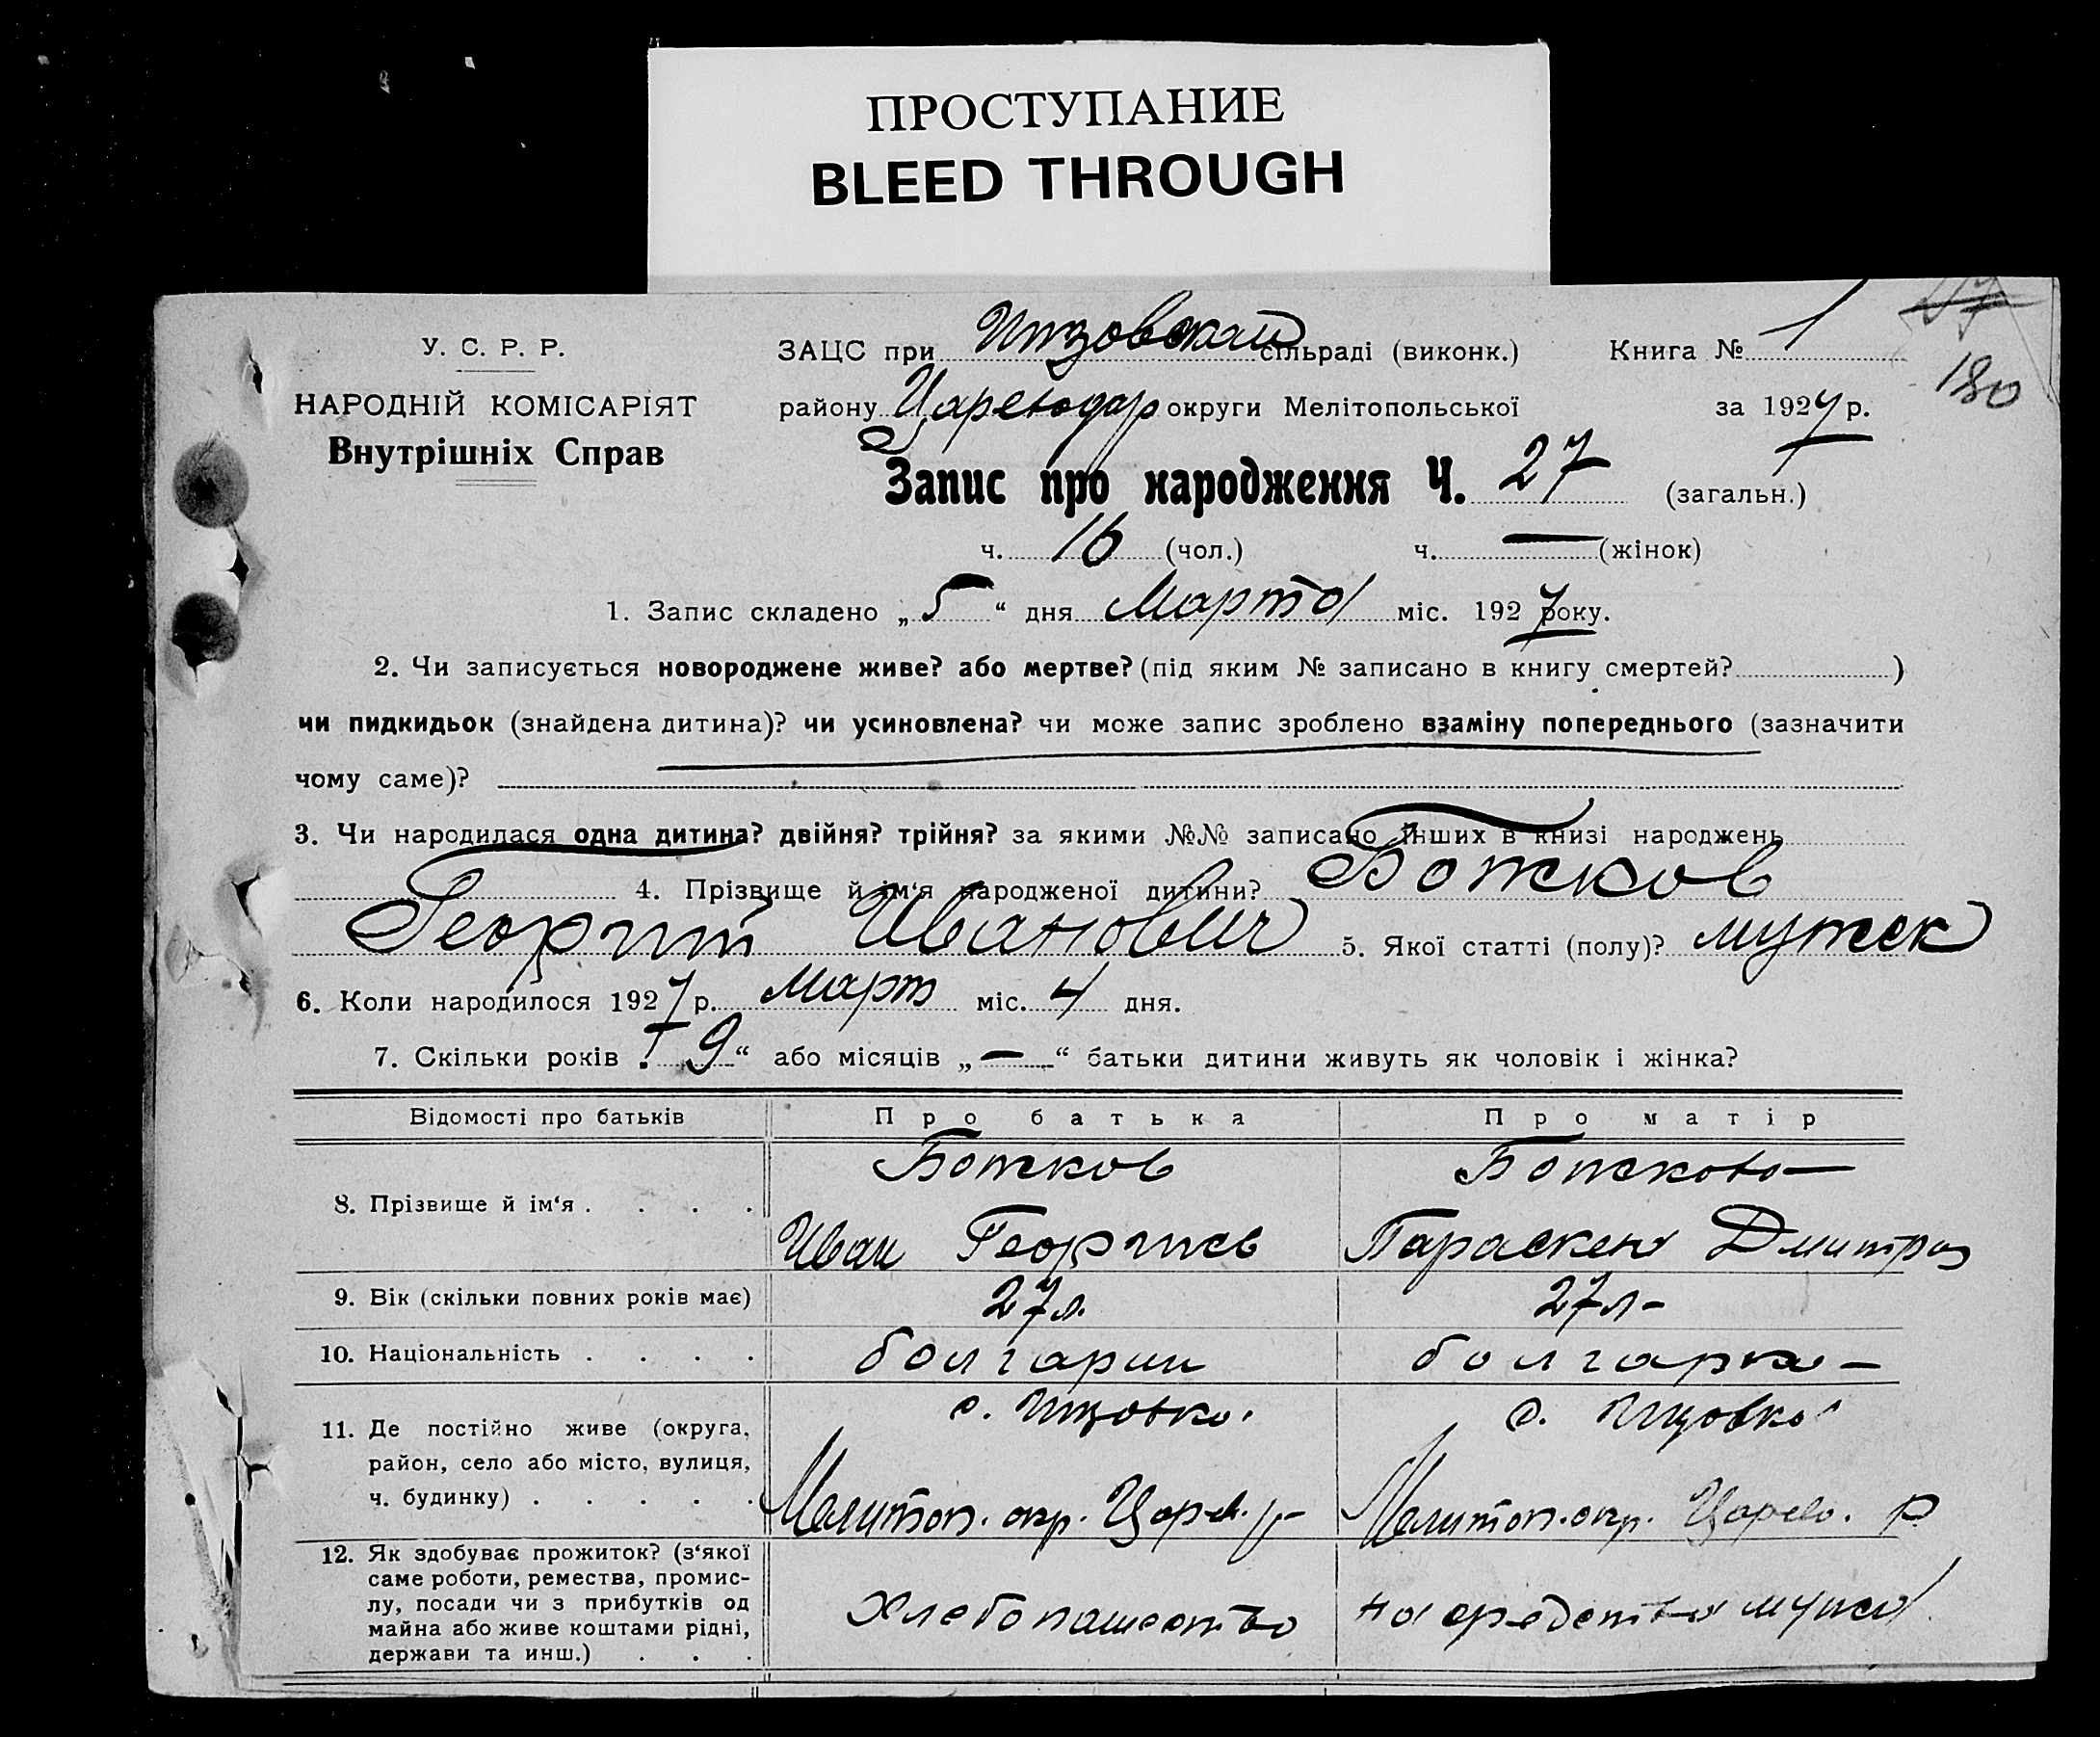 ПРОСТУПАНИЕ
BLEED THROUGH
У. С. Р. Р.
НАРОДНІЙ КОМІСАРІЯТ
Внутрішніх Справ
ЗАЦС при сільраді (виконк.) Книга № 1
району округи Мелітопольської за 1927 р.
180
Запис про народження Ч. 27 (загальн.)
ч. 16 (чол.) ч. — (жінок)
1. Запис складено „5“ дня Марта міс. 1927 року.
2. Чи записується новороджене живе? або мертве? (під яким № записано в книгу смертей? )
чи пидкидьок (знайдена дитина)? чи усиновлена? чи може запис зроблено взаміну попереднього (зазначити
чому саме)?
3. Чи народилася одна дитина? двійня? трійня? за якими №№ записано інших в книзі народжень
4. Прізвище й ім‘я народженої дитини? Божков
Георгий Иванович 5. Якої статті (полу)? мужск
6. Коли народилося 1927 р. Март міс. 4 дня.
7. Скільки років „9“ або місяців „—“ батьки дитини живуть як чоловік і жінка?
Відомості про батьків Про батька Про матір
8. Прізвище й ім‘я . . . . Божков Божкова
Иван Георгиев Параскева Дмитров
9. Вік (скільки повних років має) 27 л. 27 л-
10. Національність . . . . болгарин болгарка-
11. Де постійно живе (округа, район, село або місто, вулиця, ч. будинку) . . . . .
Мелитоп. окр. Царев. р- Мелитоп. окр. Царев. р
12. Як здобуває прожиток? (з‘якої саме роботи, ремества, промислу, посади чи з прибутків од майна або живе коштами рідні, держави та инш.) . . . Хлебопашество на средства мужа